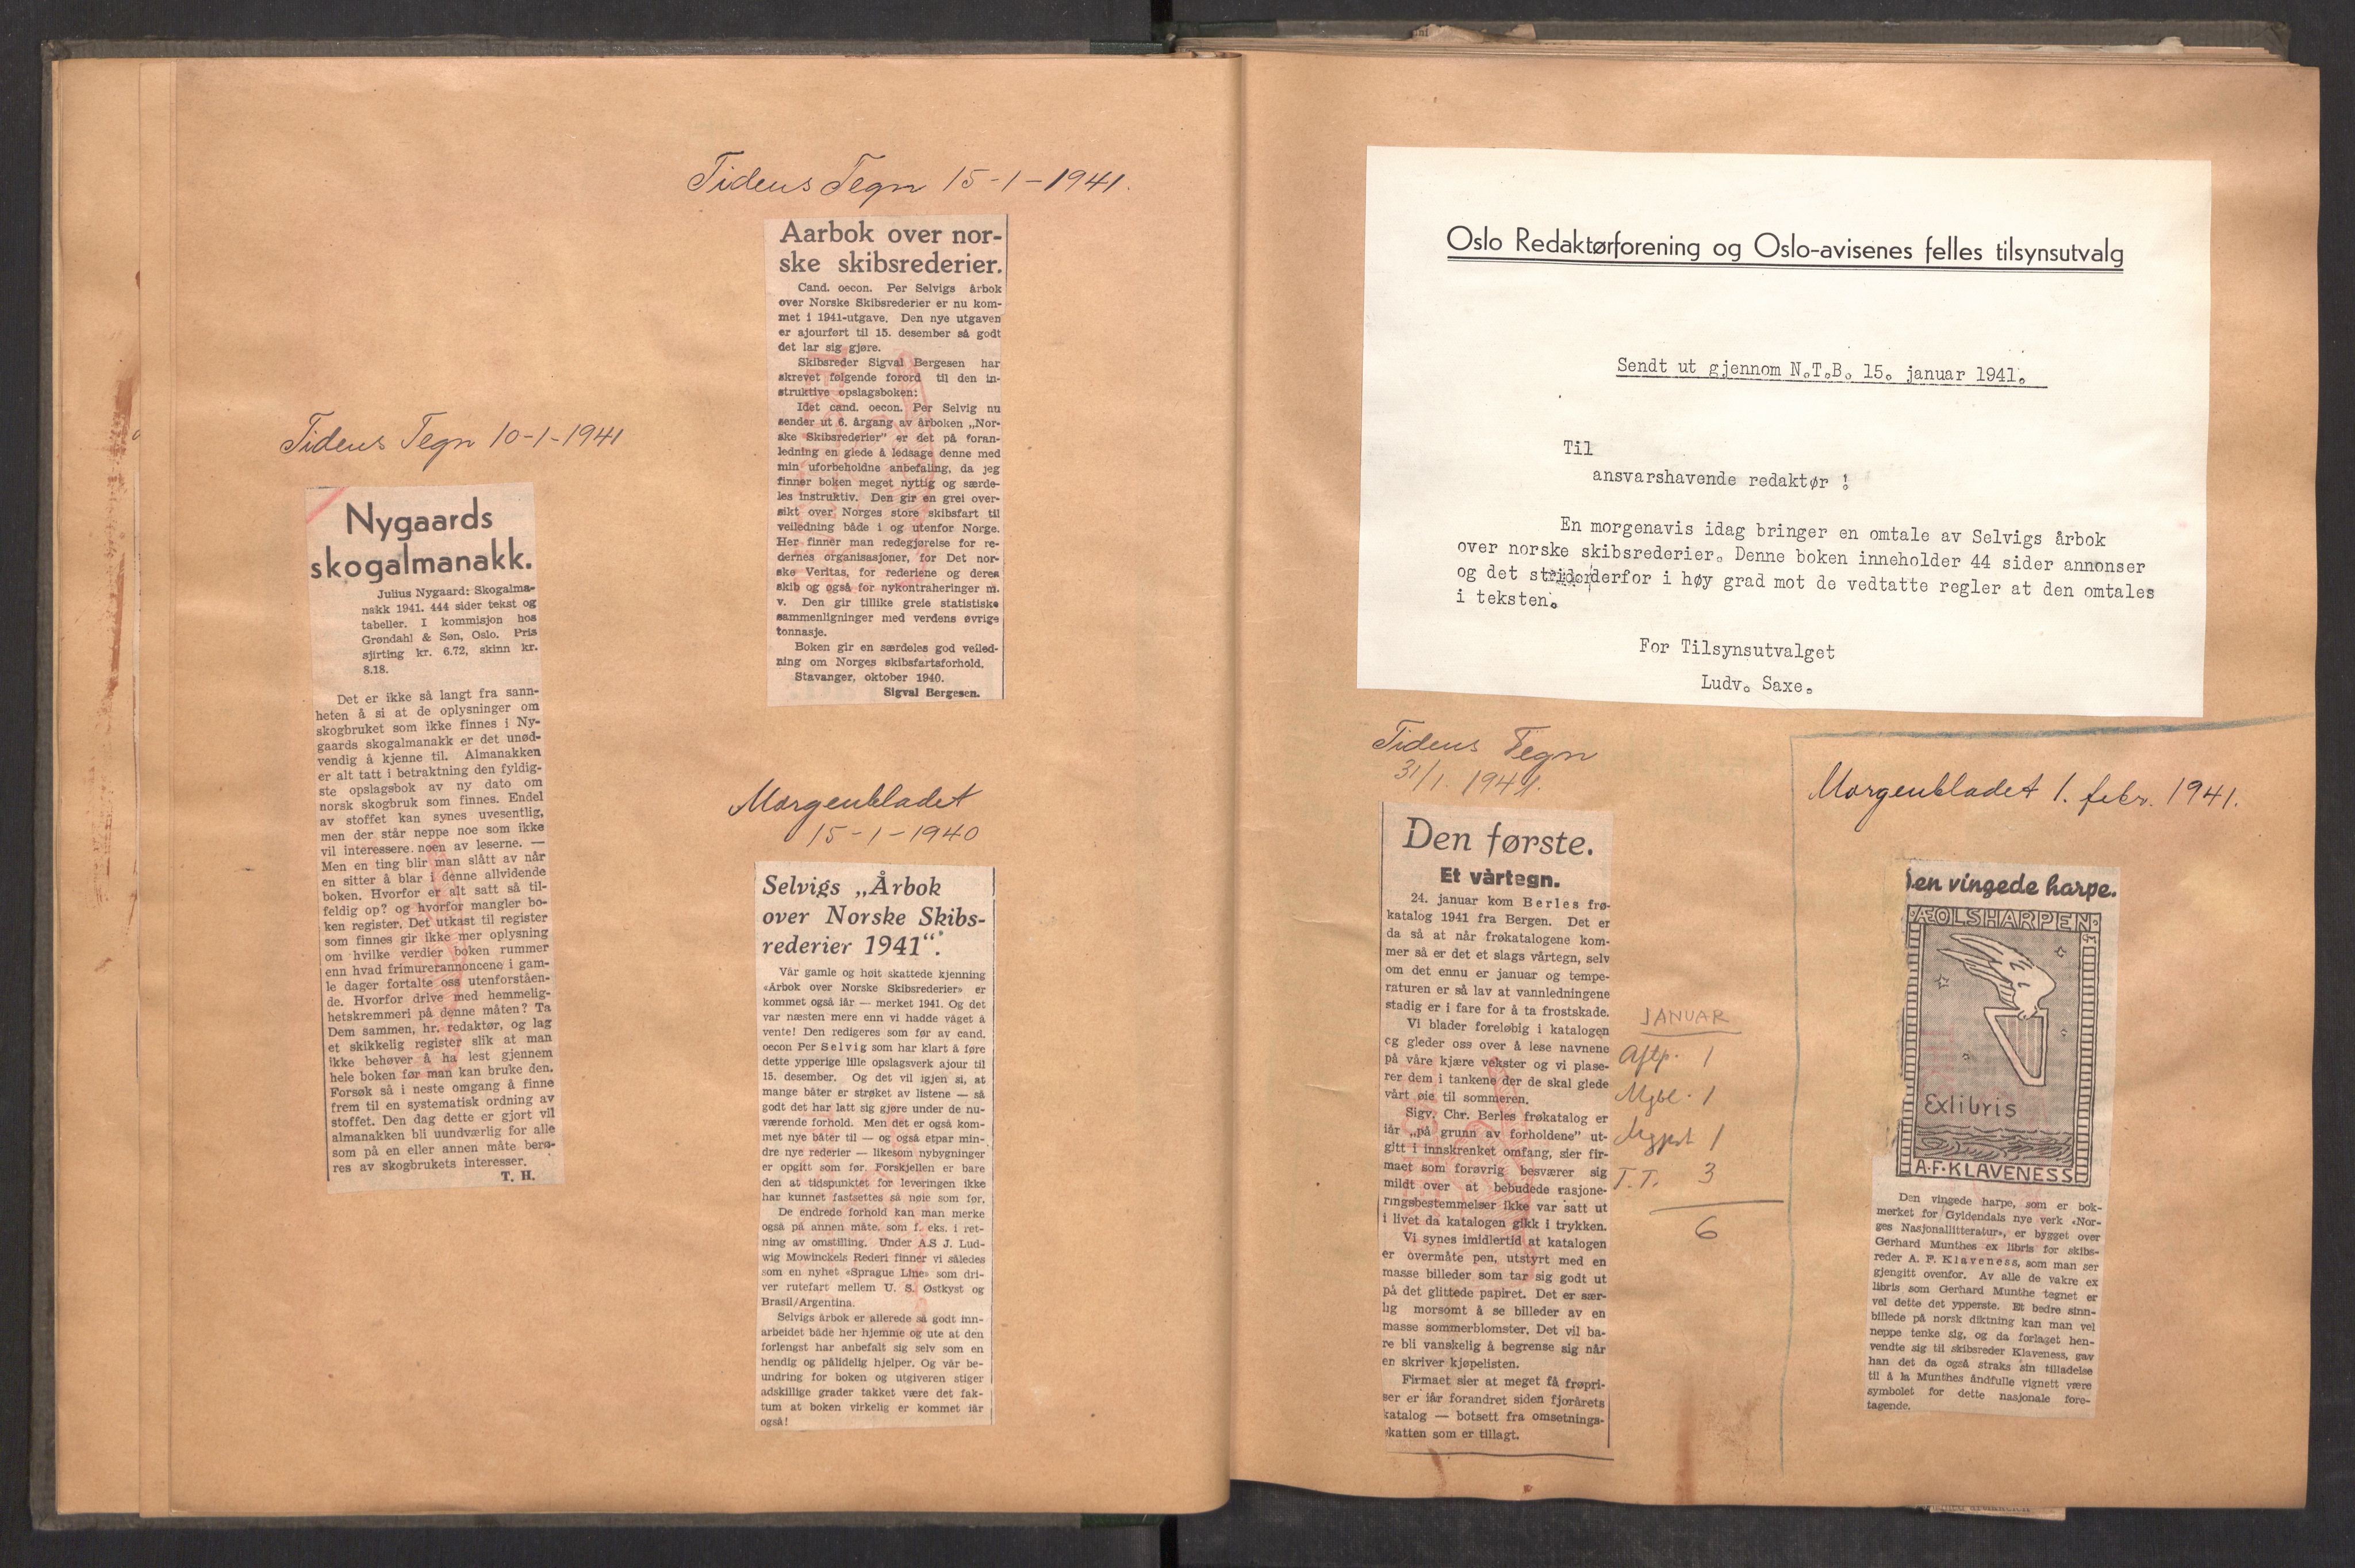 Tidens Tegn 10-1-1941
Nygaards
skogalmanakk.
Julius Nygaard: Skogalma-
nakk 1941. 444 sider tekst og
tabeller. I kommisjon hos
Grøndahl & Søn, Oslo. Pris
sjirting kr. 6.72, skinn kr.
8.18.
Det er ikke så langt fra sann-
heten å si at de oplysninger om
skogbruket som ikke finnes i Ny-
gaards skogalmanakk er det unød-
vendig å kjenne til. Almanakken
er alt tatt i betraktning den fyldig-
ste opslagsbok av ny dato om
norsk skogbruk som finnes. Endel
av stoffet kan synes uvesentlig,
men der står neppe noe som ikke
vil interessere noen av leserne. —
Men en ting blir man slått av når
en sitter å blar i denne allvidende
boken. Hvorfor er alt satt så til-
feldig op? og hvorfor mangler bo-
ken register. Det utkast til register
som finnes gir ikke mer oplysning
om hvilke verdier boken rummer
enn hvad frimurerannoncene i gam-
le dager fortalte oss utenforståen-
de. Hvorfor drive med hemmelig-
hetskremmeri på denne måten? Ta
Dem sammen, hr. redaktør, og lag
et skikkelig register slik at man
ikke behøver å ha lest gjennem
hele boken før man kan bruke den.
Forsøk så i neste omgang å finne
frem til en systematisk ordning av
stoffet. Den dag dette er gjort vil
almanakken bli uundværlig for alle
som på en eller annen måte berø-
res av skogbrukets interesser.
T. H.
Tidens Tegn 15-1-1941.
Aarbok over nor-
ske skibsrederier.
Cand. oecon. Per Selvigs årbok
over Norske Skibsrederier er nu kom-
met i 1941-utgave. Den nye utgaven
er ajourført til 15. desember så godt
det lar sig gjøre.
Skibsreder Sigval Bergesen har
skrevet følgende forord til den in-
struktive opslagsboken:
Idet cand. oecon. Per Selvig nu
sender ut 6. årgang av årboken „Nor-
ske Skibsrederier” er det på foran-
ledning en glede å ledsage denne med
min uforbeholdne anbefaling, da jeg
finner boken meget nyttig og særde-
les instruktiv. Den gir en grei over-
sikt over Norges store skibsfart til
veiledning både i og utenfor Norge.
Her finner man redegjørelse for re-
dernes organisasjoner, for Det nor-
ske Veritas, for rederiene og deres
skib og også for nykontraheringer m.
v. Den gir tillike greie statistiske
sammenligninger med verdens øvrige
tonnasje.
Boken gir en særdeles god veiled-
ning om Norges skibsfartsforhold.
Stavanger, oktober 1940.
Sigval Bergesen.
Morgenbladet
15-1-1940
Selvigs „Årbok
over Norske Skibs-
rederier 1941“.
Vår gamle og høit skattede kjenning
«Årbok over Norske Skibsrederier» er
kommet også iår — merket 1941. Og det
var næsten mere enn vi hadde våget å
vente! Den redigeres som før av cand.
oecon Per Selvig som har klart å føre
dette ypperige lille opslagsverk ajour til
15. desember. Og det vil igjen si, at
mange båter er strøket av listene — så
godt det har latt sig gjøre under de nu-
værende forhold. Men det er også kom-
met nye båter til — og også etpar min-
dre nye rederier — likesom nybygninger
er opgitt som før. Forskjellen er bare
den at tidspunktet for leveringen ikke
har kunnet fastsettes så nøie som før.
De endrede forhold kan man merke
også på annen måte, som f. eks. i ret-
ning av omstilling. Under A.S J. Lud-
wig Mowinckels Rederi finner vi således
som en nyhet «Sprague Line» som dri-
ver rutefart mellem U. S. Østkyst og
Brasil/Argentina.
Selvigs årbok er allerede så godt inn-
arbeidet både her hjemme og ute at den
forlengst har anbefalt sig selv som en
hendig og pålidelig hjelper. Og vår be-
undring for boken og utgiveren stiger
adskillige grader takket være det fak-
tum at boken virkelig er kommet iår
også!
Oslo Redaktørforening og Oslo-avisenes felles tilsynsutvalg
Sendt ut gjennom N.T.B. 15. januar 1941.
Til
ansvarshavende redaktør !
En morgenavis idag bringer en omtale av Selvigs årbok
over norske skibsrederier. Denne boken inneholder 44 sider annonser
og det strider derfor i høy grad mot de vedtatte regler at den omtales
i teksten.
For Tilsynsutvalget
Ludv. Saxe.
Tidens Tegn
31/1. 1941.
Den første.
Et vårtegn.
24. januar kom Berles frø-
katalog 1941 fra Bergen. Det er
da så at når frøkatalogene kom-
mer så er det et slags vårtegn, selv
om det ennu er januar og tempe-
raturen er så lav at vannledningene
stadig er i fare for å ta frostskade.
Vi blader foreløbig i katalogen
og gleder oss over å lese navnene
på våre kjære vekster og vi plase-
rer dem i tankene der de skal glede
vårt øie til sommeren.
Sigv. Chr. Berles frøkatalog er
iår „på grunn av forholdene” ut-
gitt i innskrenket omfang, sier fir-
maet som forøvrig besværer sig
mildt over at bebudede rasjone-
ringsbestemmelser ikke var satt ut
i livet da katalogen gikk i trykken.
Vi synes imidlertid at katalogen
er overmåte pen, utstyrt med en
masse billeder som tar sig godt ut
på det glittede papiret. Det er sær-
lig morsomt å se billeder av en
masse sommerblomster. Det vil ba-
re bli vanskelig å begrense sig når
en skriver kjøpelisten.
Firmaet sier at meget få frøpri-
ser er iår forandret siden fjorårets
katalog — botsett fra omsetnings-
skatten som er tillagt.
JANUAR
Aftp. 1
Mgbl. 1
Mgpst 1
T.T. 3
6
Morgenbladet 1. febr. 1941.
Den vingede harpe.
ÆOLSHARPEN
Exlibris
A·F·KLAVENESS
Den vingede harpe, som er bok-
merket for Gyldendals nye verk «Nor-
ges Nasjonallitteratur», er bygget over
Gerhard Munthes ex libris for skibs-
reder A. F. Klaveness, som man ser
gjengitt ovenfor. Av alle de vakre ex
libris som Gerhard Munthe tegnet er
vel dette det ypperste. Et bedre sinn-
billede på norsk diktning kan man vel
neppe tenke sig, og da forlaget hen-
vendte sig til skibsreder Klaveness, gav
han det da også straks sin tilladelse
til å la Munthes åndfulle vignett være
symbolet for dette nasjonale fore-
tagende.